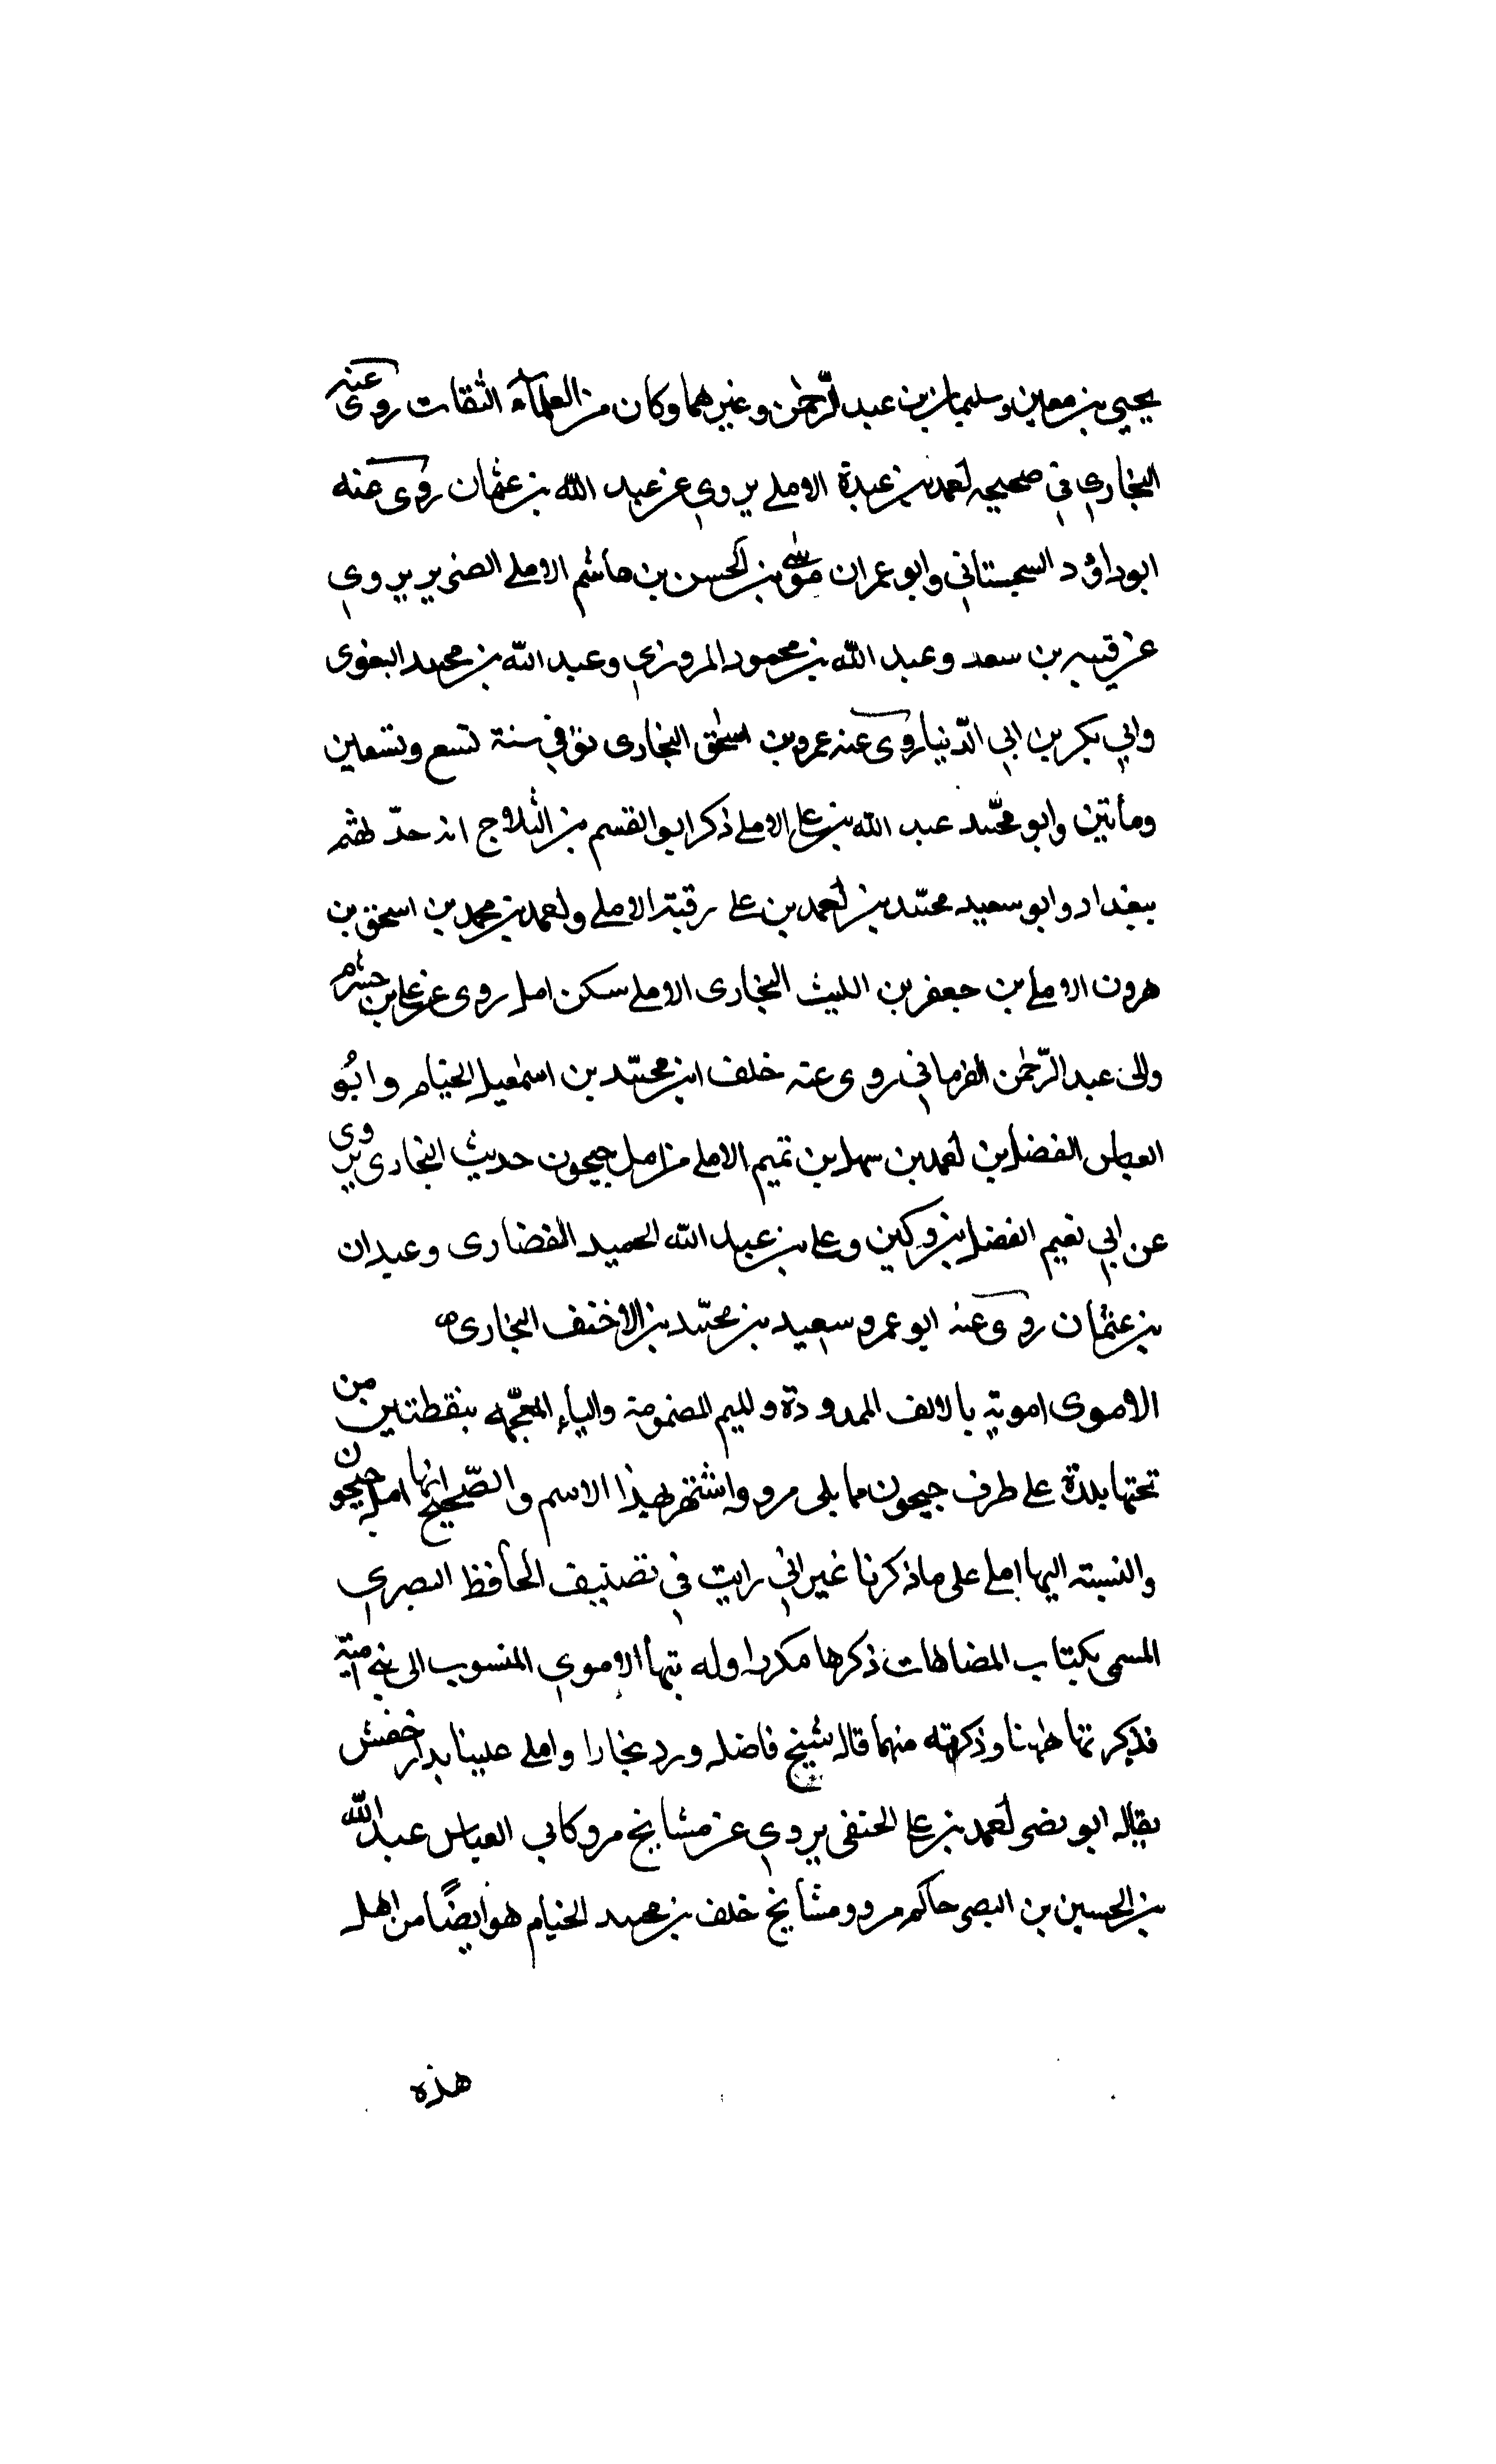 يحيى بن معين وسليمان بن عبد الرّحمٰن وغيرهما وكان من العلمآء الثقات روى عنه
البخاري في صحيحه احمد بن عبدة الاملي يروي عن عبد الله بن عثمان روى عنه
ابو داؤد السجستاني وابو عمران موسٰى بن الحسن بن هاشم الاملي الضرير يروي
عن قتيبه بن سعد وعبد الله بن محمود المروزي وعبد الله بن محمد البغوى
وابي بكر بن ابي الدّنيا روى عنه عمرو بن اسحٰق البخارى توفي سنة تسع وتسعين
ومأتين وابو محمّد عبد الله بن علي الاملي ذكر ابو القسم بن الثلاج انه حدّ لهم
ببغداد وابو سعيد محمّد بن احمد بن علي رقبة الاملي واحمد بن محمد بن اسحق بن
هرون الاملي بن جعفر بن الليث البخارى الاملي سكن امل روى عن علي بن خشرم
والى عبد الرّحمٰن الفرماني روى عنه خلف ابن محمّد بن اسمٰعيل الخيام وابُو
العباس الفضل بن احمد بن سهل بن تميم الاملي من امل جيحون حديث البخارى يروى
عن ابي نعيم الفضل بن وكين وعلي بن عبد الله الحميد الغضارى وعبدان
بن عثمان روى عنه ابو عمرو سعيد بن محمّد بن الاخنف البخارى
الاموى امويه بالالف الممدودة والميم المضمومة والياء المعجّمه بنقطتين من
تحتها بلدة على طرف جيحون مما يلى مرو واشتهر بهذا الاسم والصّحيح انها امل جيحون
والنسبته اليها املي على ما ذكرنا غير اني رايت في تصنيف الحافظ البصري
المسمى بكتاب المضاهات ذكرها مكررا وله بتها الاموي المنسوب الى بني امية
فذكرتها ههنا وذكرته منهما قال شيخ فاضل ورد بخارا واملي علينا بدار خفش
يقال ابو نصر احمد بن علي الحنفى يروي عن مشايخ مرو كابي العباس عبد الله
بن الحسين بن البصرى حاكم مرو ومشايخ خلف بن محمد الخيام هو ايضًا من اهل
هذه